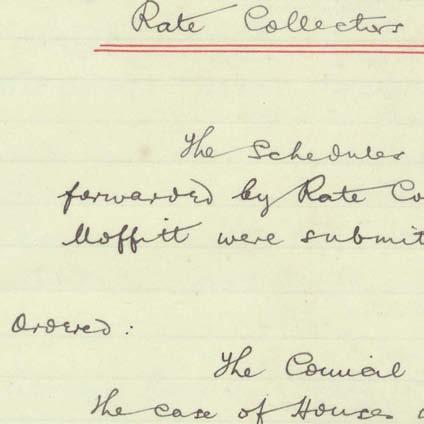 Rate Collectors
The Schedules
forwarded by Rate Co
Moffitt were submit
Ordered:
The Council
the case of Houses